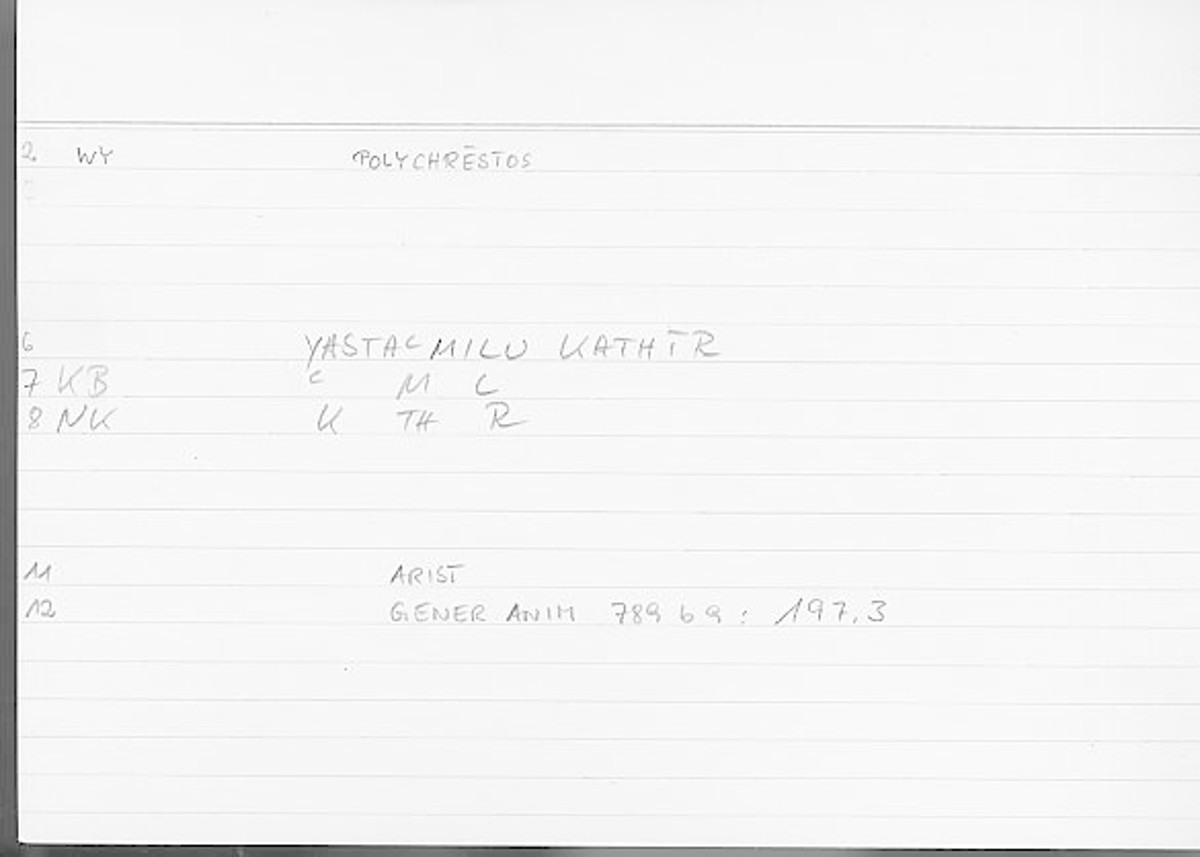 2 WY POLYCHRĒSTOS
6 YASTAᶜMILU KATHĪR
7 KB ᶜ M L
8 NK K TH R
11 ARIST
12 GENER ANIM 789 b 9 : 197,3